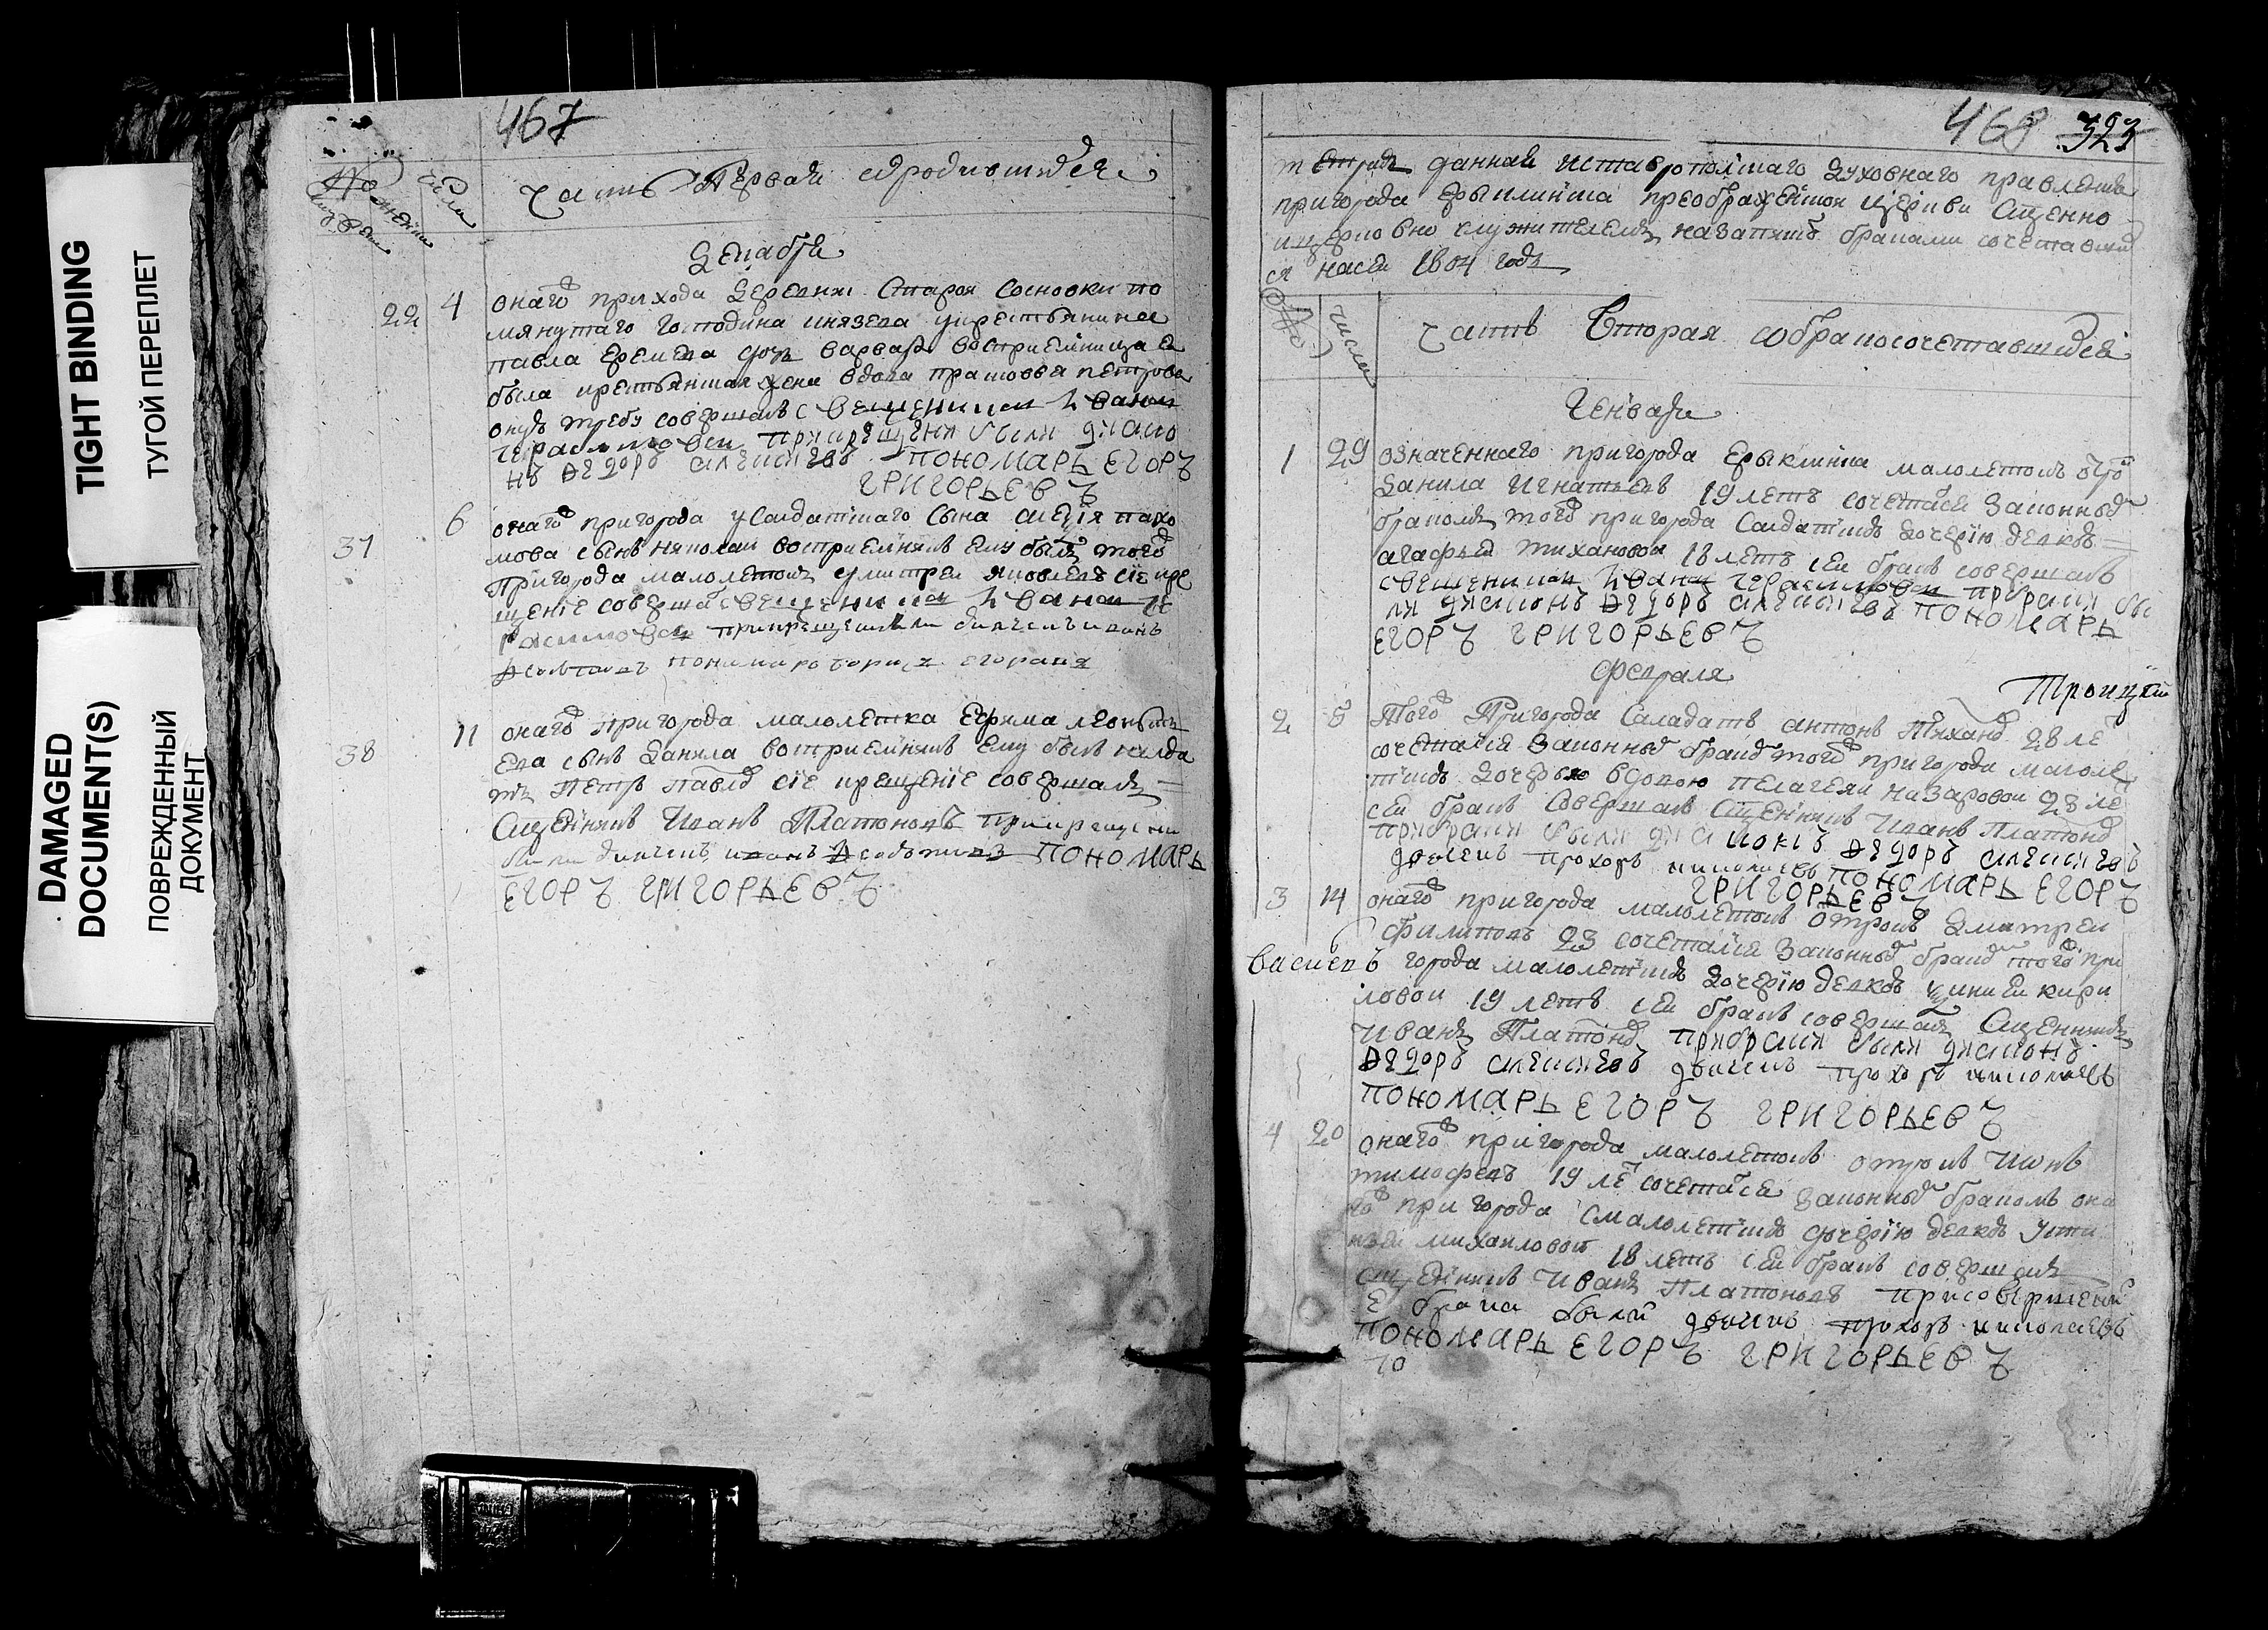 TIGHT BINDING
ТУГОЙ ПЕРЕПЛЕТ
DAMAGED
DOCUMENT(S)
ПОВРЕЖДЕННЫЙ
ДОКУМЕНТ
467
числа
часть Первая
Декабря
22 4 онаго прихода деревни Старой Сосновки по
мянутаго господина князева у крестьянина
павла еремева дочь варвара восприемница ей
была крестьянская жена вдова прасковья петрова
оную требу совершал священникъ Иванъ
Герасимовъ при крещени были диако
нъ Ѳедоръ алексѣевъ пономарь егоръ
григорьевъ
37 6 онаго пригорода у Салдатскаго сына пахо
мова сынъ николаи восприемникъ ему былъ того
пригорода малолетокъ дмитреи яковлевъ сие кре
щение совершал священникъ Иванъ Ге
расимовъ
38 11 онаго пригорода малолетка Ефима леонтье
ева сынъ Данила восприемникъ ему былъ салда
тъ Петръ павло сие крещение совершалъ
Сщенникъ Иванъ Платоновъ при крещени
были дьячекъ иванъ пономарь
егоръ григорьевъ
468 323
тетрадь данная из ставропольскаго духовнаго правления
пригорода Ерыклинска преображенской церкви Сщенно
и церковно служителемъ на записъ браками сочетавши
ся на сей 1804 годъ
числа
часть Вторая о бракосочетавшихся
Генваря
1 29 означеннаго пригорода Ерыклинска малолетокъ отро
Данила Игнатьевъ 19 летъ сочетася законнымъ
бракомъ того пригорода Салдатскою дочерию девкою
агафьей тихановой 18 летъ сей бракъ совершалъ
священникъ Иванъ Герасимовъ при браки бы
ли диаконъ Ѳедоръ алексѣевъ пономарь
егоръ григорьевъ
Февраля
Троицкий
2 5 Того Пригорода Салдатъ антонъ Тихано 28 ле
сочетался законны брако того пригорода малоле
тскою дочерью вдовою пелагеи назаровой 28 ле
сей бракъ Совершалъ Сщенникъ Иванъ Платоно
при браки были диаконъ Ѳедоръ алексѣевъ
дьячекъ прохоръ николаевъ пономарь егоръ
григорьевъ
3 14 онаго пригорода малолетокъ отрокъ Дмитреи
филиповъ 23 сочетался законны брако того при
города малолетскою дочерию девкою кири
ловой 19 летъ сей бракъ совершалъ Сщенникъ
Иванъ Платоно при браки были диаконъ
Ѳедоръ алексѣевъ дьячекъ прохоръ николаевъ
пономарь егоръ григорьевъ
4 20 онаго пригорода малолетокъ отрокъ
тимофеевъ 19 ле сочетася законны бракомъ она
го пригорода с малолетскою дочерию девкою усти
ньей михаиловой 18 летъ сей бракъ совершалъ
сщенникъ Иванъ Платоновъ при совершени
е брака были дьячекъ прохоръ николаевъ
пономарь егоръ григорьевъ